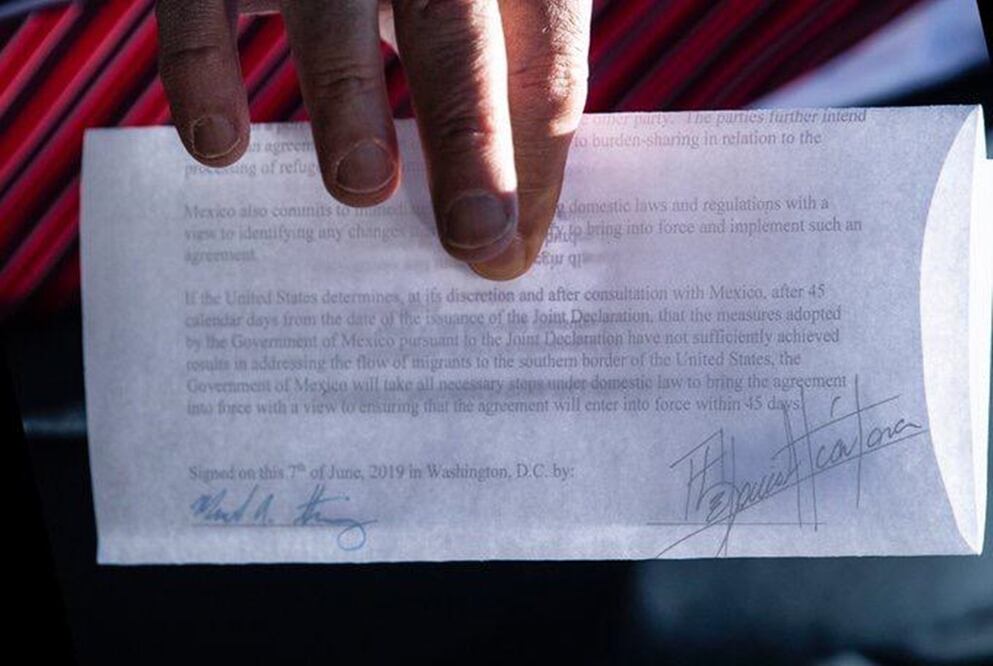 party. The parties further intend
agreem to burden-sharing in relation to the
processing of refug
Mexico also commits to domestic laws and regulations with a
view to identifying any changes to bring into force and implement such an
agreement.
If the United States determines, at its discretion and after consultation with Mexico, after 45
calendar days from the date of the issuance of the Joint Declaration, that the measures adopted
by the Government of Mexico pursuant to the Joint Declaration have not sufficiently achieved
results in addressing the flow of migrants to the southern border of the United States, the
Government of Mexico will take all necessary steps under domestic law to bring the agreement
into force with a view to ensuring that the agreement will enter into force within 45 days.
Signed on this 7th of June, 2019 in Washington, D.C. by: